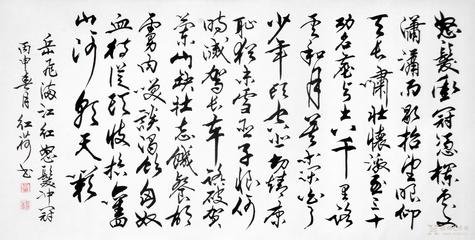 怒髮衝冠憑欄處
瀟瀟雨歇抬望眼仰
天長嘯壯懷激烈三十
功名塵與土八千里路
雲和月莫等閑白了
少年頭空悲切靖康
恥猶未雪臣子恨何
時滅駕長車踏破賀
蘭山缺壯志飢餐胡
虜肉笑談渴飲匈奴
血待從頭收拾舊
山河朝天闕
岳飛滿江紅怒髮沖冠
丙申春月紅荷書